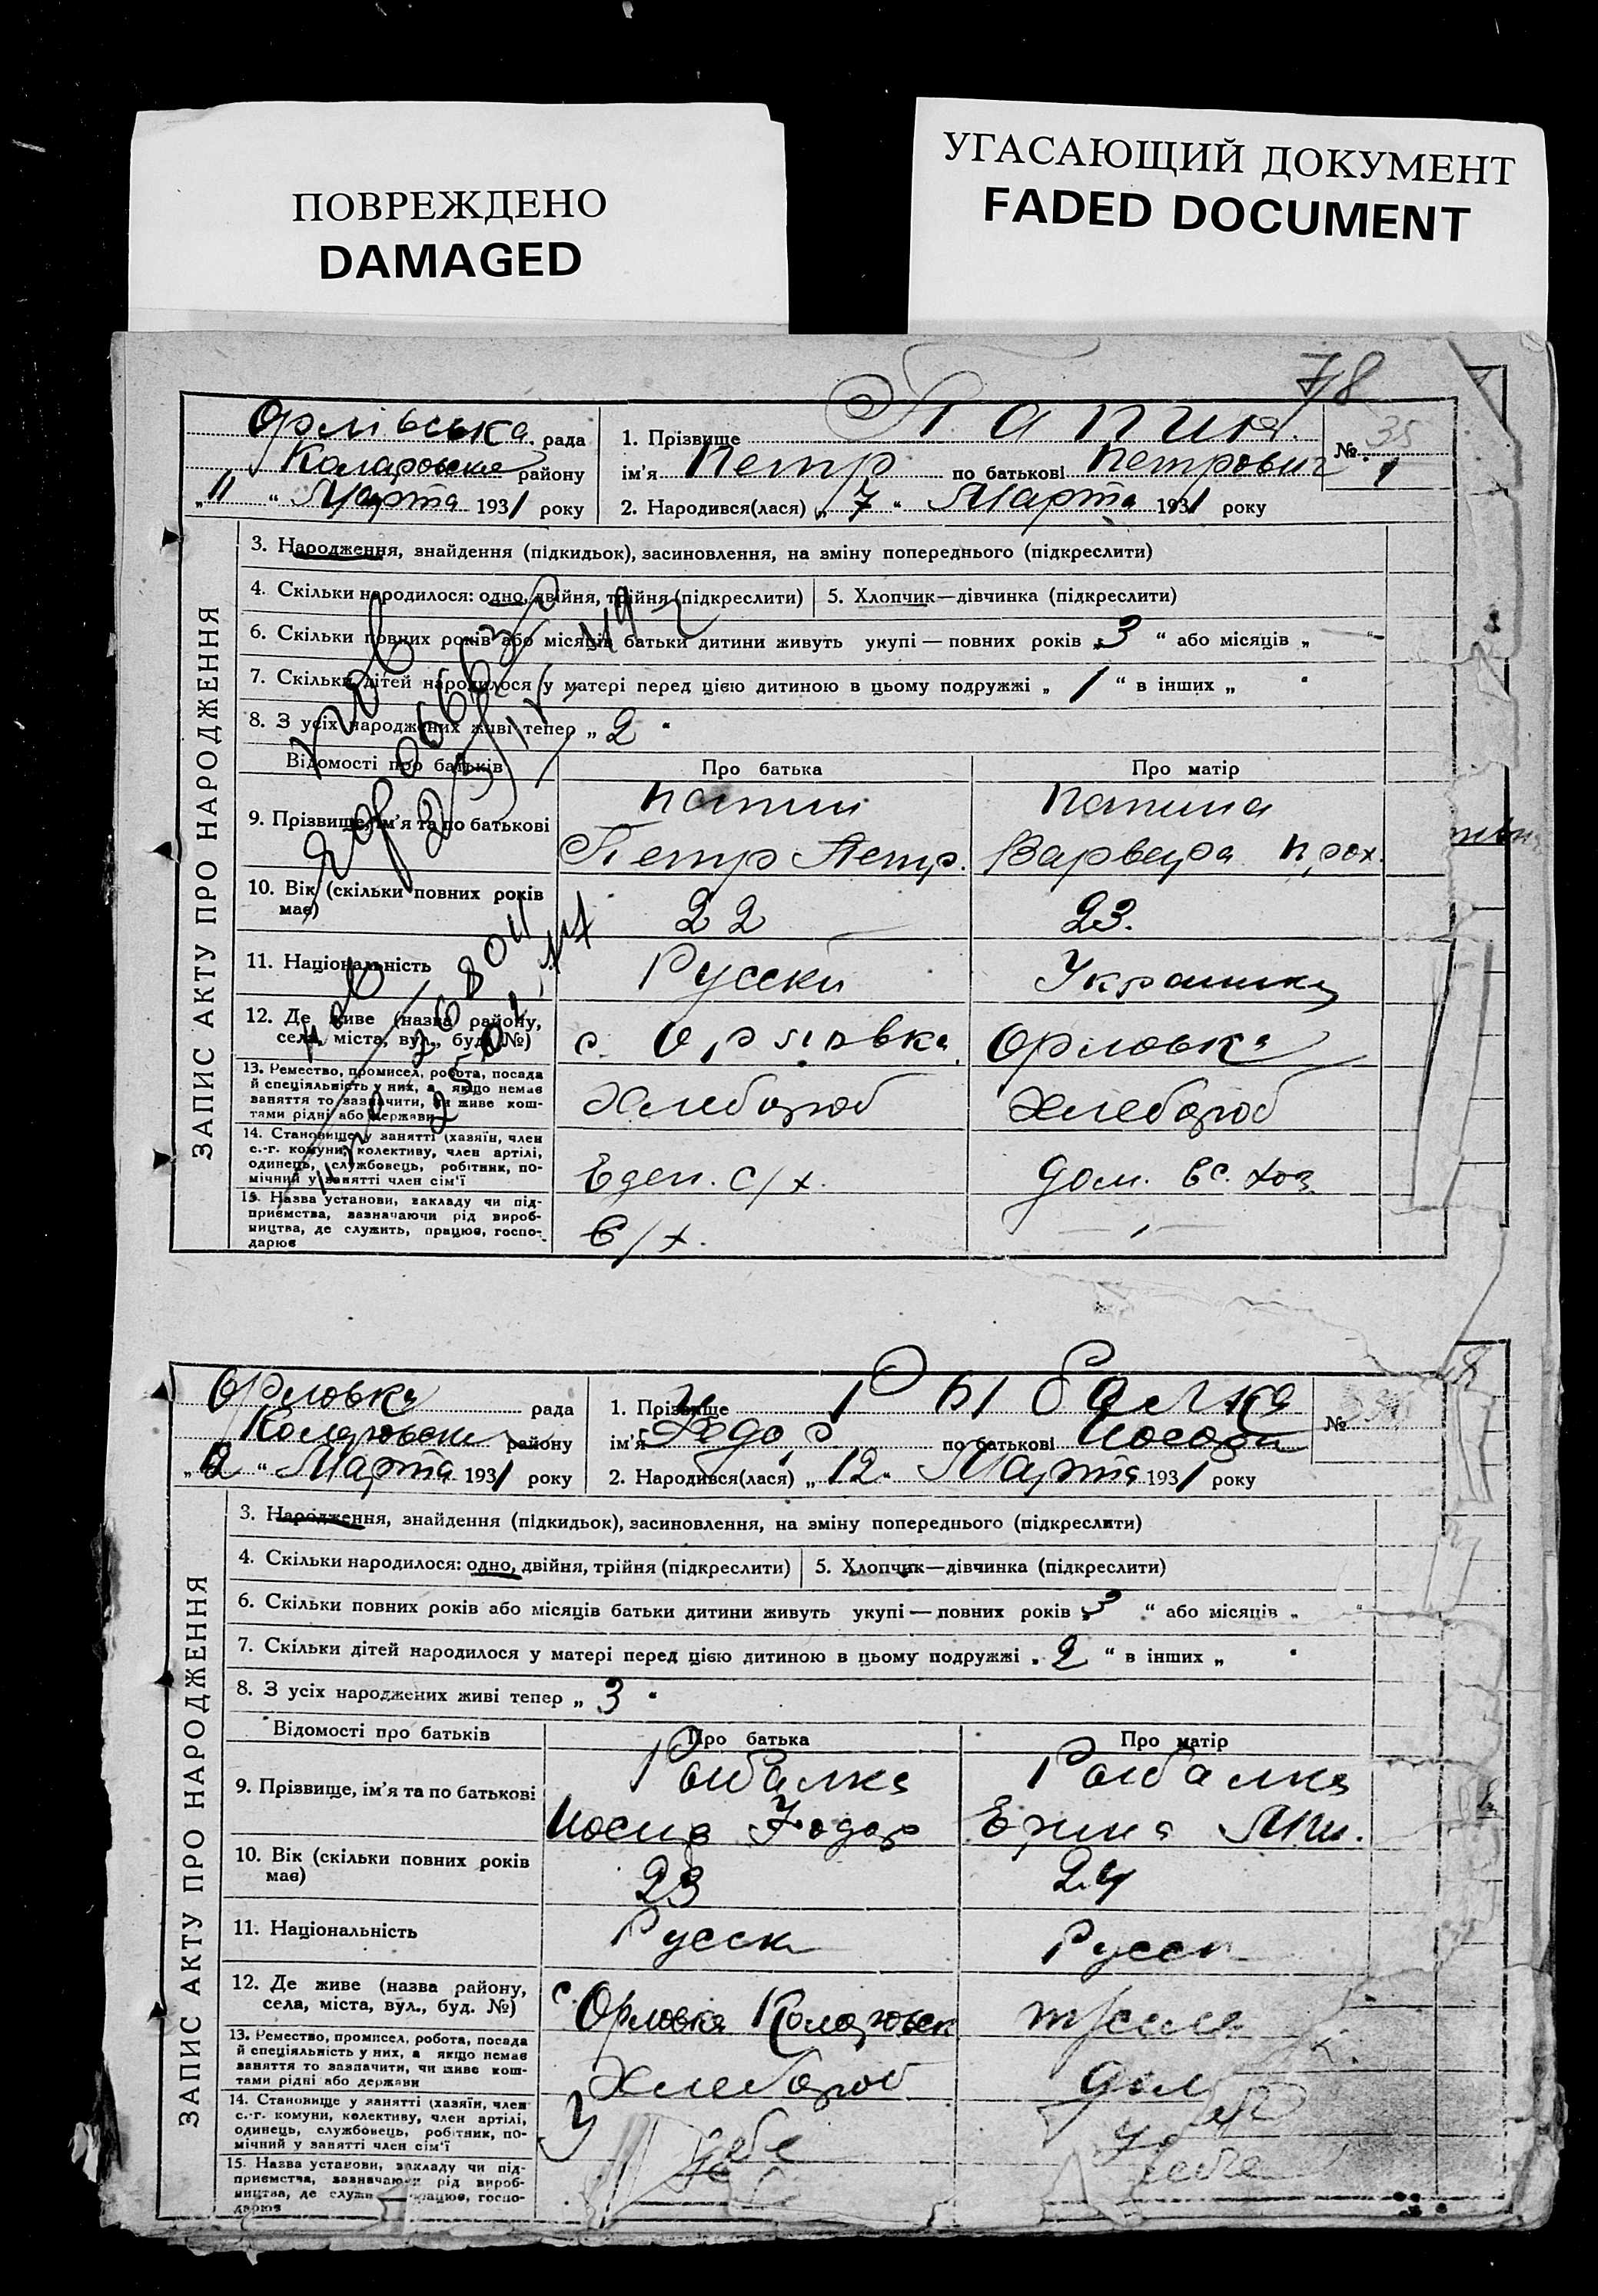 ПОВРЕЖДЕНО
DAMAGED
УГАСАЮЩИЙ ДОКУМЕНТ
FADED DOCUMENT
78
ЗАПИС АКТУ ПРО НАРОДЖЕННЯ
Орлівська рада
Коларовск району
„11“ Марта 1931 року
1. Прізвище Папин
№ 35
ім'я Петр по батькові Петрович
2. Народився(лася) „7“ Марта 1931 року
3. Народження, знайдення (підкидьок), засиновлення, на зміну попереднього (підкреслити)
4. Скільки народилося: одно, двійня, трійня (підкреслити)
5. Хлопчик—дівчинка (підкреслити)
6. Скільки повних років або місяців батьки дитини живуть укупі — повних років „3“ або місяців „—“
7. Скільки дітей народилося у матері перед цією дитиною в цьому подружжі „1“ в інших „
8. З усіх народжених живі тепер „2“
Відомості про батьків Про батька Про матір
9. Прізвище, ім'я та по батькові
Папин Папина
Петр Петр. Варвара Прох.
10. Вік (скільки повних років має) 22 23.
11. Національність Русски Украинка
12. Де живе (назва району, села, міста, вул., буд. №) с. Орловка Орловка
13. Ремество, промисел, робота, посада
й спеціяльність у них, а якщо немає
заняття то зазначити, чи живе кош-
тами рідні або держави
Хлебороб Хлебороб
14. Становище у занятті (хазяїн, член
с.-г. комуни, колективу, член артілі,
одинець, службовець, робітник, по-
мічний у занятті член сім'ї
Еден. с/х. Дом. вс. хоз.
15. Назва установи, закладу чи під-
приємства, зазначаючи рід вироб-
ництва, де служить, працює, госпо-
дарює
с/х. —
ЗАПИС АКТУ ПРО НАРОДЖЕННЯ
Орловка рада
Коларовск району
„12“ Марта 1931 року
1. Прізвище Рыбалка
№
ім'я Федор по батькові
2. Народився(лася) „12“ Марта 1931 року
3. Народження, знайдення (підкидьок), засиновлення, на зміну попереднього (підкреслити)
4. Скільки народилося: одно, двійня, трійня (підкреслити)
5. Хлопчик—дівчинка (підкреслити)
6. Скільки повних років або місяців батьки дитини живуть укупі — повних років „3“ або місяців „ “
7. Скільки дітей народилося у матері перед цією дитиною в цьому подружжі „2“ в інших „
8. З усіх народжених живі тепер „3“
Відомості про батьків Про батька Про матір
9. Прізвище, ім'я та по батькові
Рыбалка Рыбалка
Иосиф Федор
10. Вік (скільки повних років має) 23 24
11. Національність Русск Русск
12. Де живе (назва району, села, міста, вул., буд. №) с Орловка Коларовск
13. Ремество, промисел, робота, посада
й спеціяльність у них, а якщо немає
заняття то зазначити, чи живе кош-
тами рідні або держави
Хлебороб Дом
14. Становище у занятті (хазяїн, член
с.-г. комуни, колективу, член артілі,
одинець, службовець, робітник, по-
мічний у занятті член сім'ї
У себе
15. Назва установи, закладу чи під-
приємства, зазначаючи рід вироб-
ництва, де служить, працює, госпо-
дарює